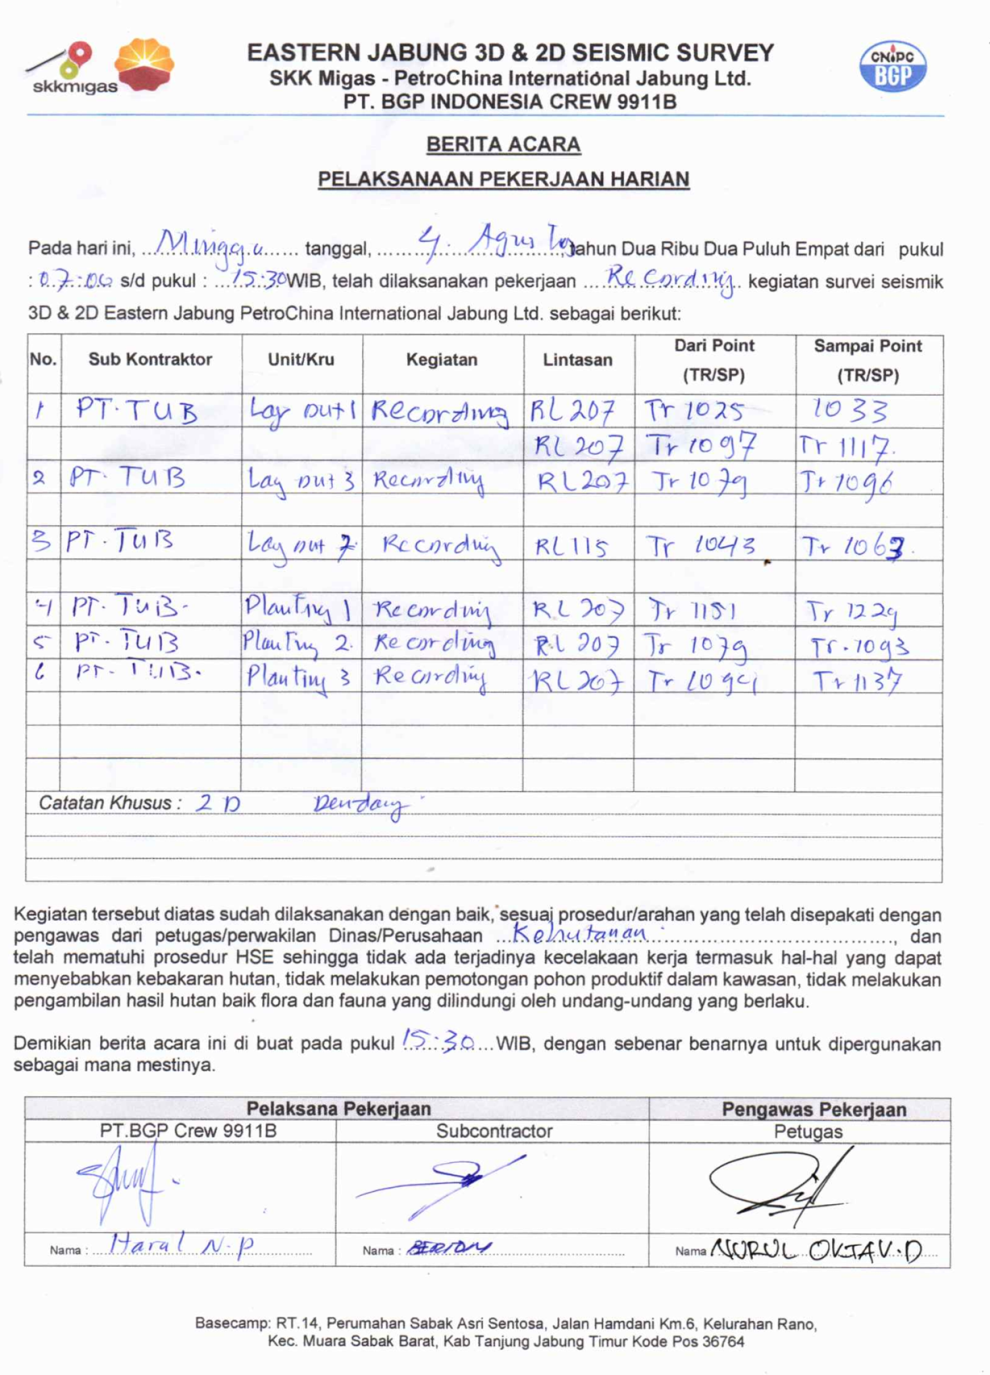 skkmigas
EASTERN JABUNG 3D & 2D SEISMIC SURVEY
SKK Migas - PetroChina International Jabung Ltd.
PT. BGP INDONESIA CREW 9911B
CNPC
BGP
BERITA ACARA
PELAKSANAAN PEKERJAAN HARIAN
Pada hari ini, Minggu tanggal, 4. Agustus, tahun Dua Ribu Dua Puluh Empat dari pukul
: 07:00 s/d pukul : 15:30 WIB, telah dilaksanakan pekerjaan Recording kegiatan survei seismik
3D & 2D Eastern Jabung PetroChina International Jabung Ltd. sebagai berikut:
No. Sub Kontraktor Unit/Kru Kegiatan Lintasan Dari Point (TR/SP) Sampai Point (TR/SP)
1 PT. TUB Lay out 1 Recording RL 207 Tr 1025 1033
RL 207 Tr 1097 Tr 1117.
2 PT. TUB Lay out 3 Recording RL 207 Tr 1079 Tr 1096
3 PT. TUB Lay out 2 Recording RL 115 Tr 1043 Tr 1063.
4 PT. TUB. Planting 1 Recording RL 207 Tr 1151 Tr 1229
5 PT. TUB Planting 2. Recording RL 207 Tr 1079 Tr. 1093
6 PT. TUB. Planting 3 Recording RL 207 Tr 1094 Tr 1137
Catatan Khusus : 2 D Dendang
Kegiatan tersebut diatas sudah dilaksanakan dengan baik, sesuai prosedur/arahan yang telah disepakati dengan
pengawas dari petugas/perwakilan Dinas/Perusahaan Kehutanan, dan
telah mematuhi prosedur HSE sehingga tidak ada terjadinya kecelakaan kerja termasuk hal-hal yang dapat
menyebabkan kebakaran hutan, tidak melakukan pemotongan pohon produktif dalam kawasan, tidak melakukan
pengambilan hasil hutan baik flora dan fauna yang dilindungi oleh undang-undang yang berlaku.
Demikian berita acara ini di buat pada pukul 15:30 WIB, dengan sebenar benarnya untuk dipergunakan
sebagai mana mestinya.
Pelaksana Pekerjaan Pengawas Pekerjaan
PT.BGP Crew 9911B Subcontractor Petugas
Nama : Haral N.P Nama : Nama NURUL OKTAV.D
Basecamp: RT.14, Perumahan Sabak Asri Sentosa, Jalan Hamdani Km.6, Kelurahan Rano,
Kec. Muara Sabak Barat, Kab Tanjung Jabung Timur Kode Pos 36764